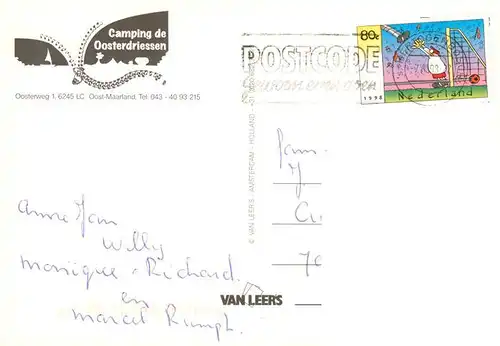 Camping de
Oosterdriessen
Oosterweg 1, 6245 LC Oost-Maarland. Tel. 043 - 40 93 215
POSTCODE
80c
1998 Nederland
© VAN LEER'S - AMSTERDAM - HOLLAND
Fam.
Anne Jan
Willy
Monique - Richard
en
Marcel
VAN LEER'S